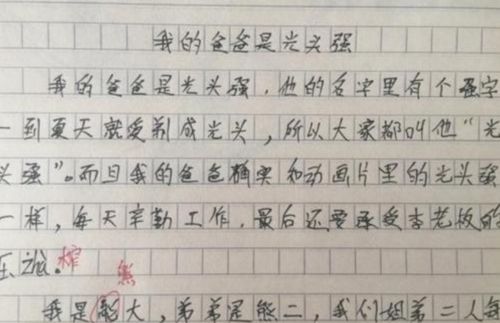 我的爸爸是光头强
我的爸爸是光头强，他的名字里有个强字
一到夏天就爱剃成光头，所以大家都叫他“光
头强”。而且我的爸爸确实和动画片里的光头强
一样，每天辛勤工作，最后还要承受李老板的
压 榨
熊
我是 大，弟弟是熊二，我们姐弟二人每